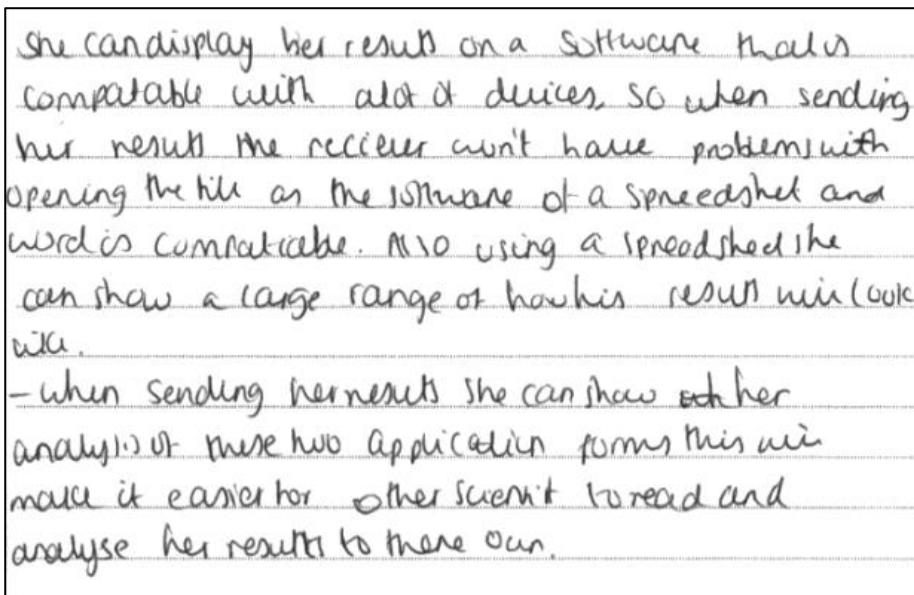 She can display her result on a software that is
compatable with alot of devices, so when sending
her result the reciever won't have problems with
opening the file as the software of a spreedshet and
word is compraticable. Also using a spreadshed she
can show a large range of how his result will look
like.
- When sending her results she can show her
analysis of these two application forms this will
make it easier for other scient to read and
analyse her results to there own.